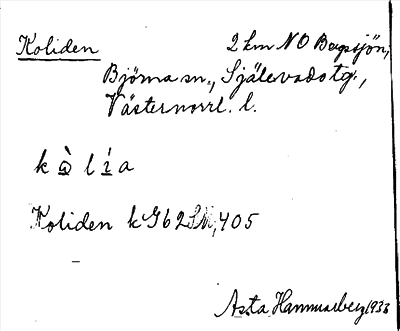 Koliden 2 km NO Bergsjön,
Björna sn., Själevads tg.,
Västernorrl. l.
k ὰ l í a
Koliden k G62SN, 405
Asta Hammarberg 1933